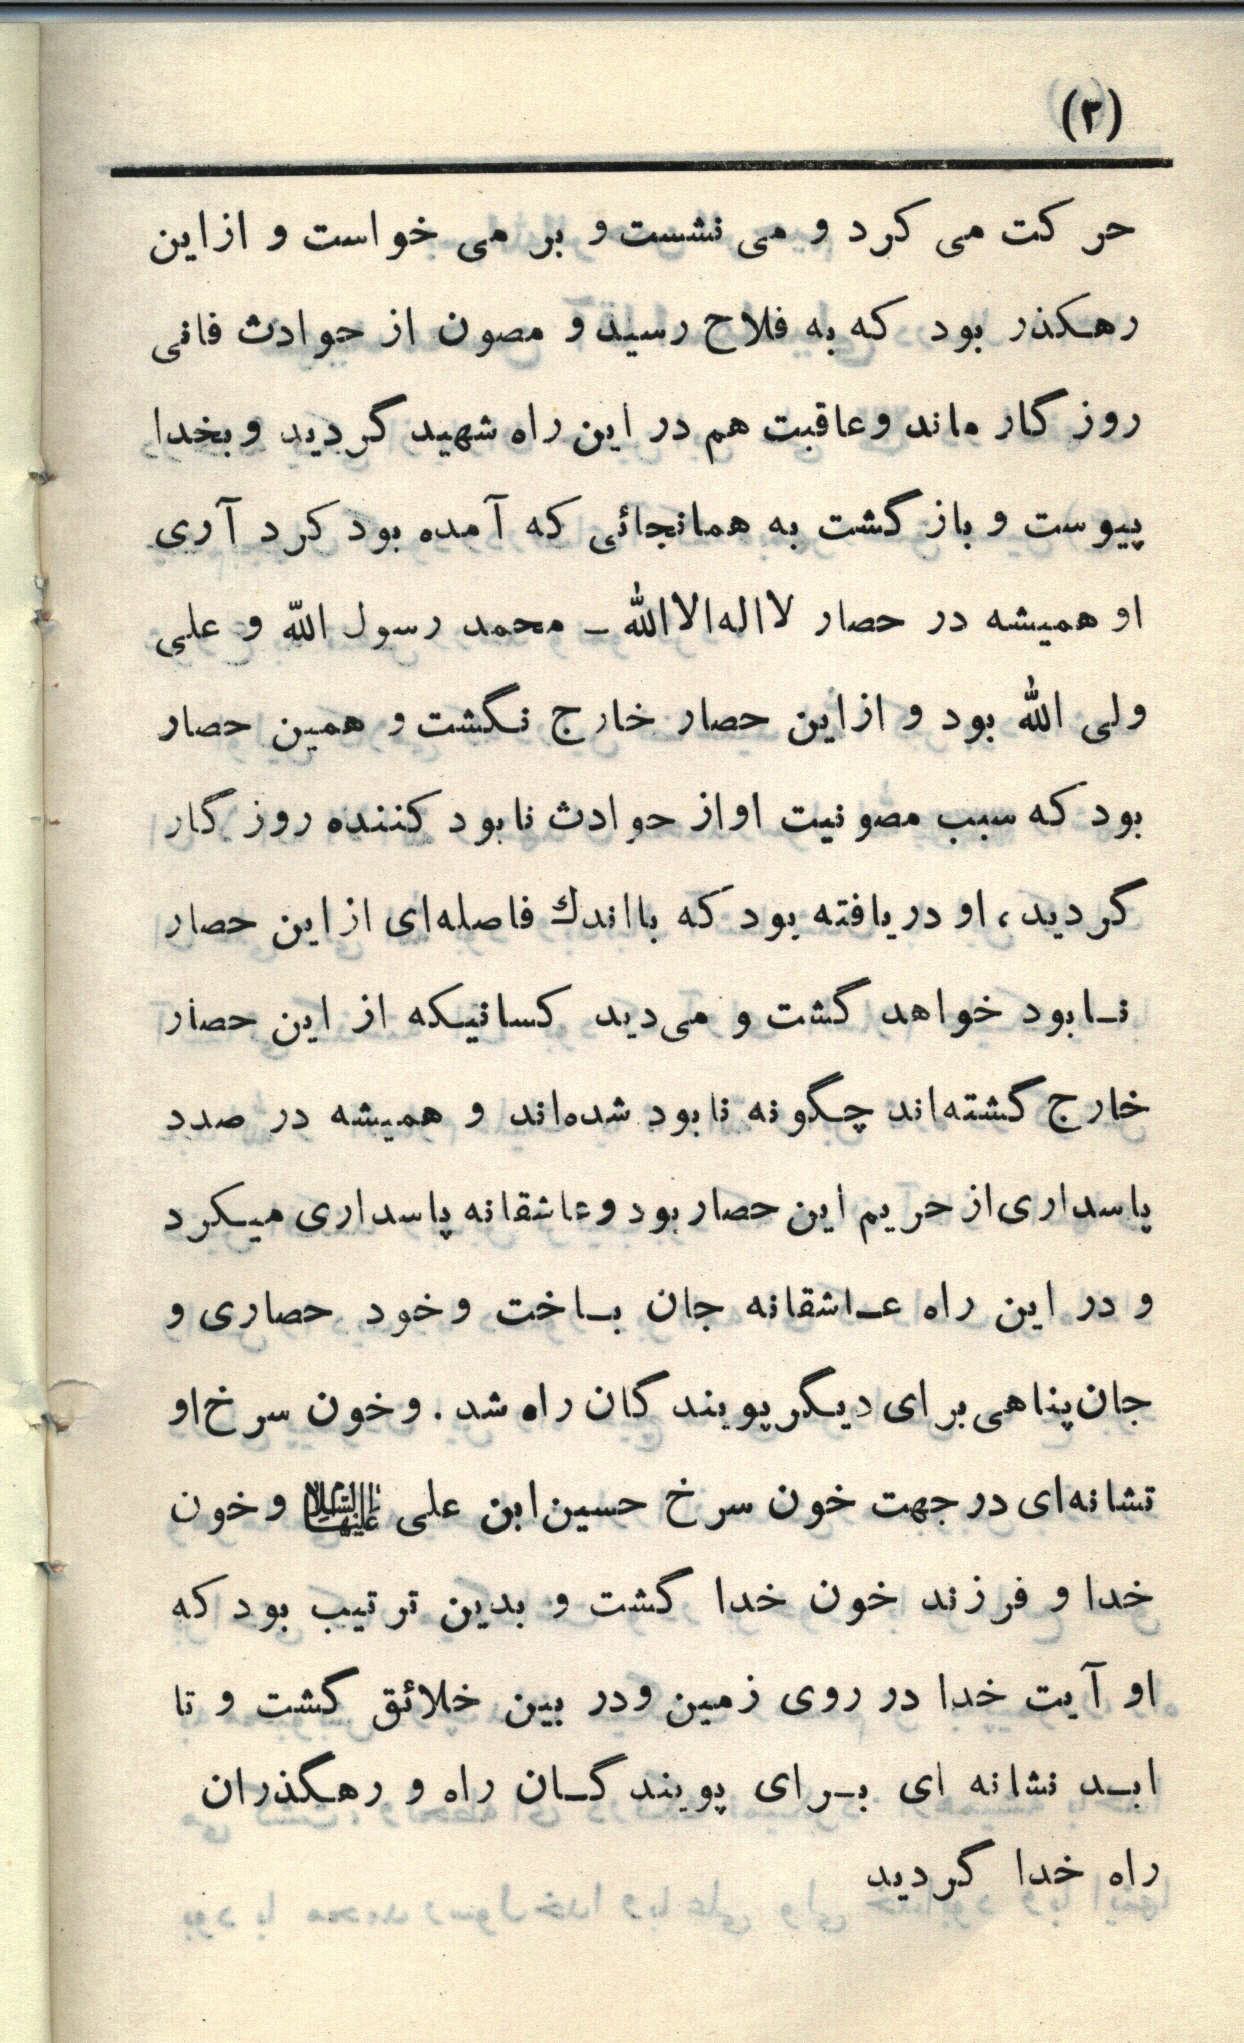 (۳)
حرکت می کرد و می نشست و بر می خواست و ازاین
رهگذر بود که به فلاح رسید و مصون از حوادث فانی
روزگار ماند و عاقبت هم در این راه شهید گردید و بخدا
پیوست و بازگشت به همانجائی که آمده بود کرد آری
او همیشه در حصار لااله‌الاالله ـ محمد رسول اللّه و علی
ولی الله بود و ازاین حصار خارج نگشت و همین حصار
بود که سبب مصونیت اواز حوادث نابود کننده روزگار
گردید، او دریافته بود که بااندك فاصله‌ای ازاین حصار
نـابود خواهد گشت و می‌دید کسانیکه از این حصار
خارج گشته‌اند چگونه نابود شده‌اند و همیشه در صدد
پاسداری‌از حریم این حصار بود و عاشقانه پاسداری میـکرد
و در این راه عـاشقانه جان بـاخت و خود حصاری و
جان‌پناهی برای دیگر پویندگان راه شد. و خون سرخ‌او
نشانه‌ای در جهت خون سرخ حسین‌ابن علی علیهماالسلام و خون
خدا و فرزند خون خدا گشت و بدین ترتیب بود که
او آیت خدا در روی زمین ودر بین خلائق گشت و تا
ابـد نشانه ای بـرای پویندگـان راه و رهـگذران
راه خدا گردید